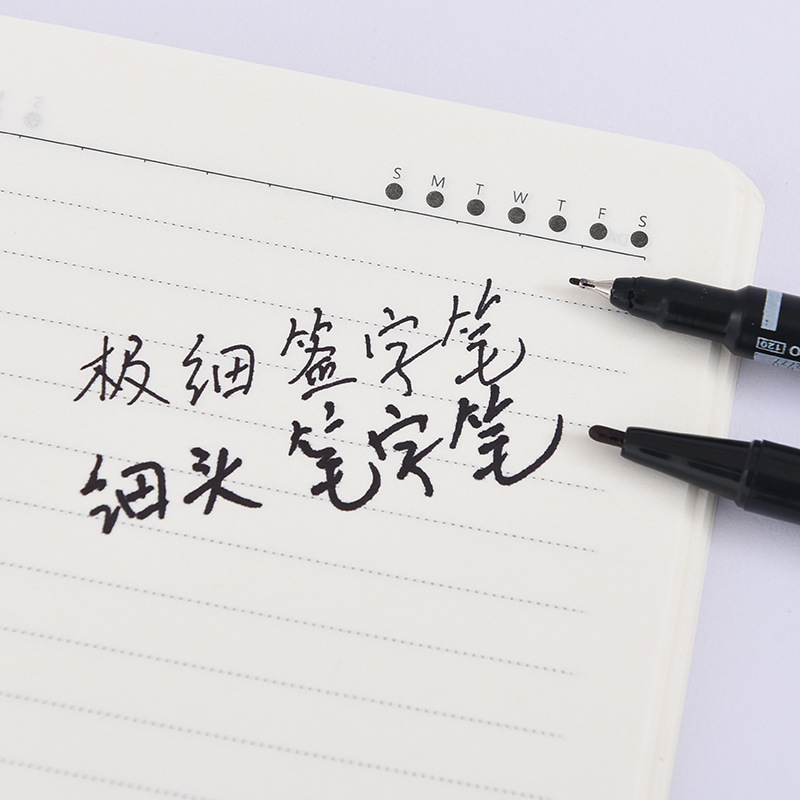 S M T W T F S
极细 签字笔
细头 笔字笔
120